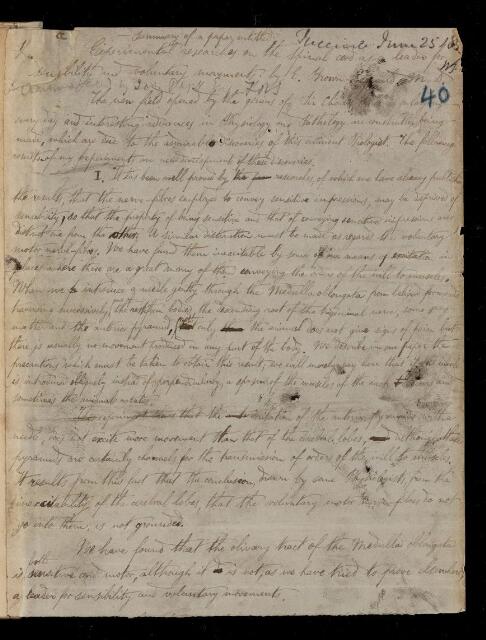 Summary of a paper entitled
Received June 25
Experimental researches on the spinal cord as a leader for
sensibility and voluntary movements; by E. Brown
40
the new field opened by the genius of Sir Charles
many and interesting advances in Physiology and Pathology are constantly being
made, which are due to the admirable discoveries of this eminent Biologist. The following
results of my experiments are new development of these discoveries.
I. It has been well proved by researches, of which we have already published
the results, that the nerve-fibres employed to convey sensitive impressions, may be deprived of
sensibility, so that the property of being sensitive and that of conveying sensitive impressions are
distinct one from the other. A similar distinction must be made as regards the voluntary
motor nerve-fibres. We have found them inexcitable by some of our means of excitation in
places where there are a great many of them conveying the orders of the will to muscles.
When we introduce a needle gently through the Medulla oblongata from behind forwards
traversing successively, the restiform bodies, the descending root of the trigeminal nerve, some
matter and the anterior pyramid, not only the animal does not give signs of pain but
there is usually no movement produced in any part of the body. We describe in our paper the
precautions which must be taken to obtain this result, we will merely say here that if the needle
is introduced obliquely instead of perpendicularly, a spasm of the muscles of the neck occurs and
sometimes the animal rotates.
that the irritation of the anterior pyramids with a
needle, does not excite more movement than that of the cerebral lobes, although the
pyramids are certainly channels for the transmission of orders of the will to muscles.
It results from this fact that the conclusion, drawn by some Physiologists, from the
inexcitability of the cerebral lobes, that the voluntary motor nerve fibres do not
go into them, is not grounded.
We have found that the olivary tract of the Medulla oblongata
both
is sensitive and motor, although it is not, as we have tried to prove elsewhere
a leader for sensibility and voluntary movements.